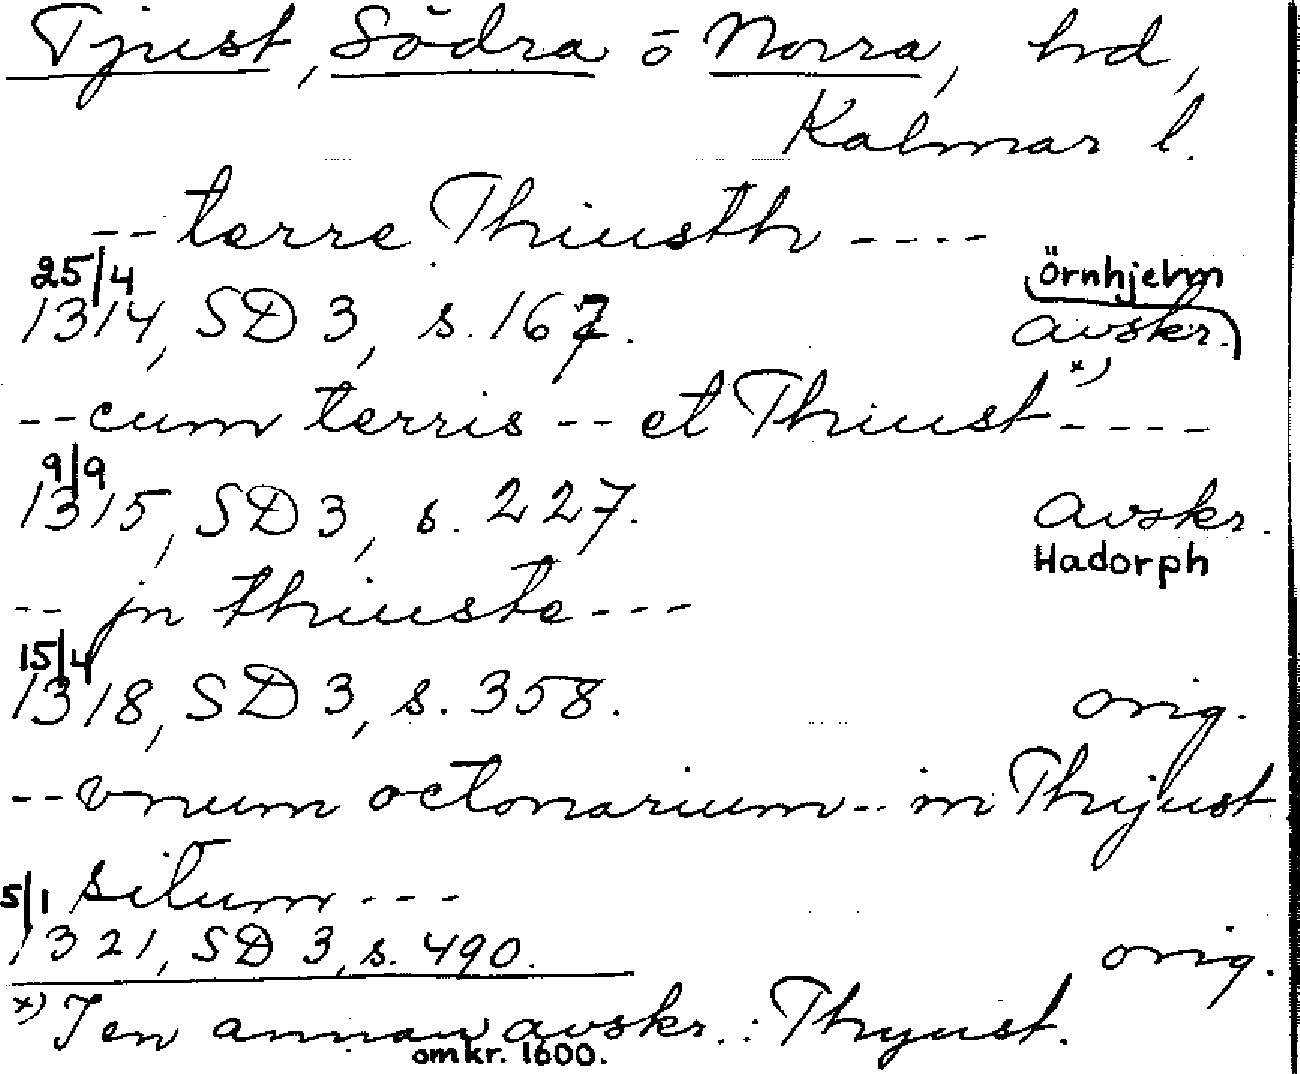 Tjust, Södra o Norra, hd,
Kalmar l.
-- terre Thiusth ----
25/4 Örnhjelm
1314, SD 3, s. 167. avskr.
-- cum terris -- et Thiust x) ----
9/9
1315, SD 3, s. 227. avskr.
Hadorph
-- jn thiuste ---
15/4
1318, SD 3, s. 358. orig.
-- vnum octonarium -- in Thijust
5/1 situm ---
1321, SD 3, s. 490. orig.
x) I en annan avskr.: Thyust.
omkr. 1600.